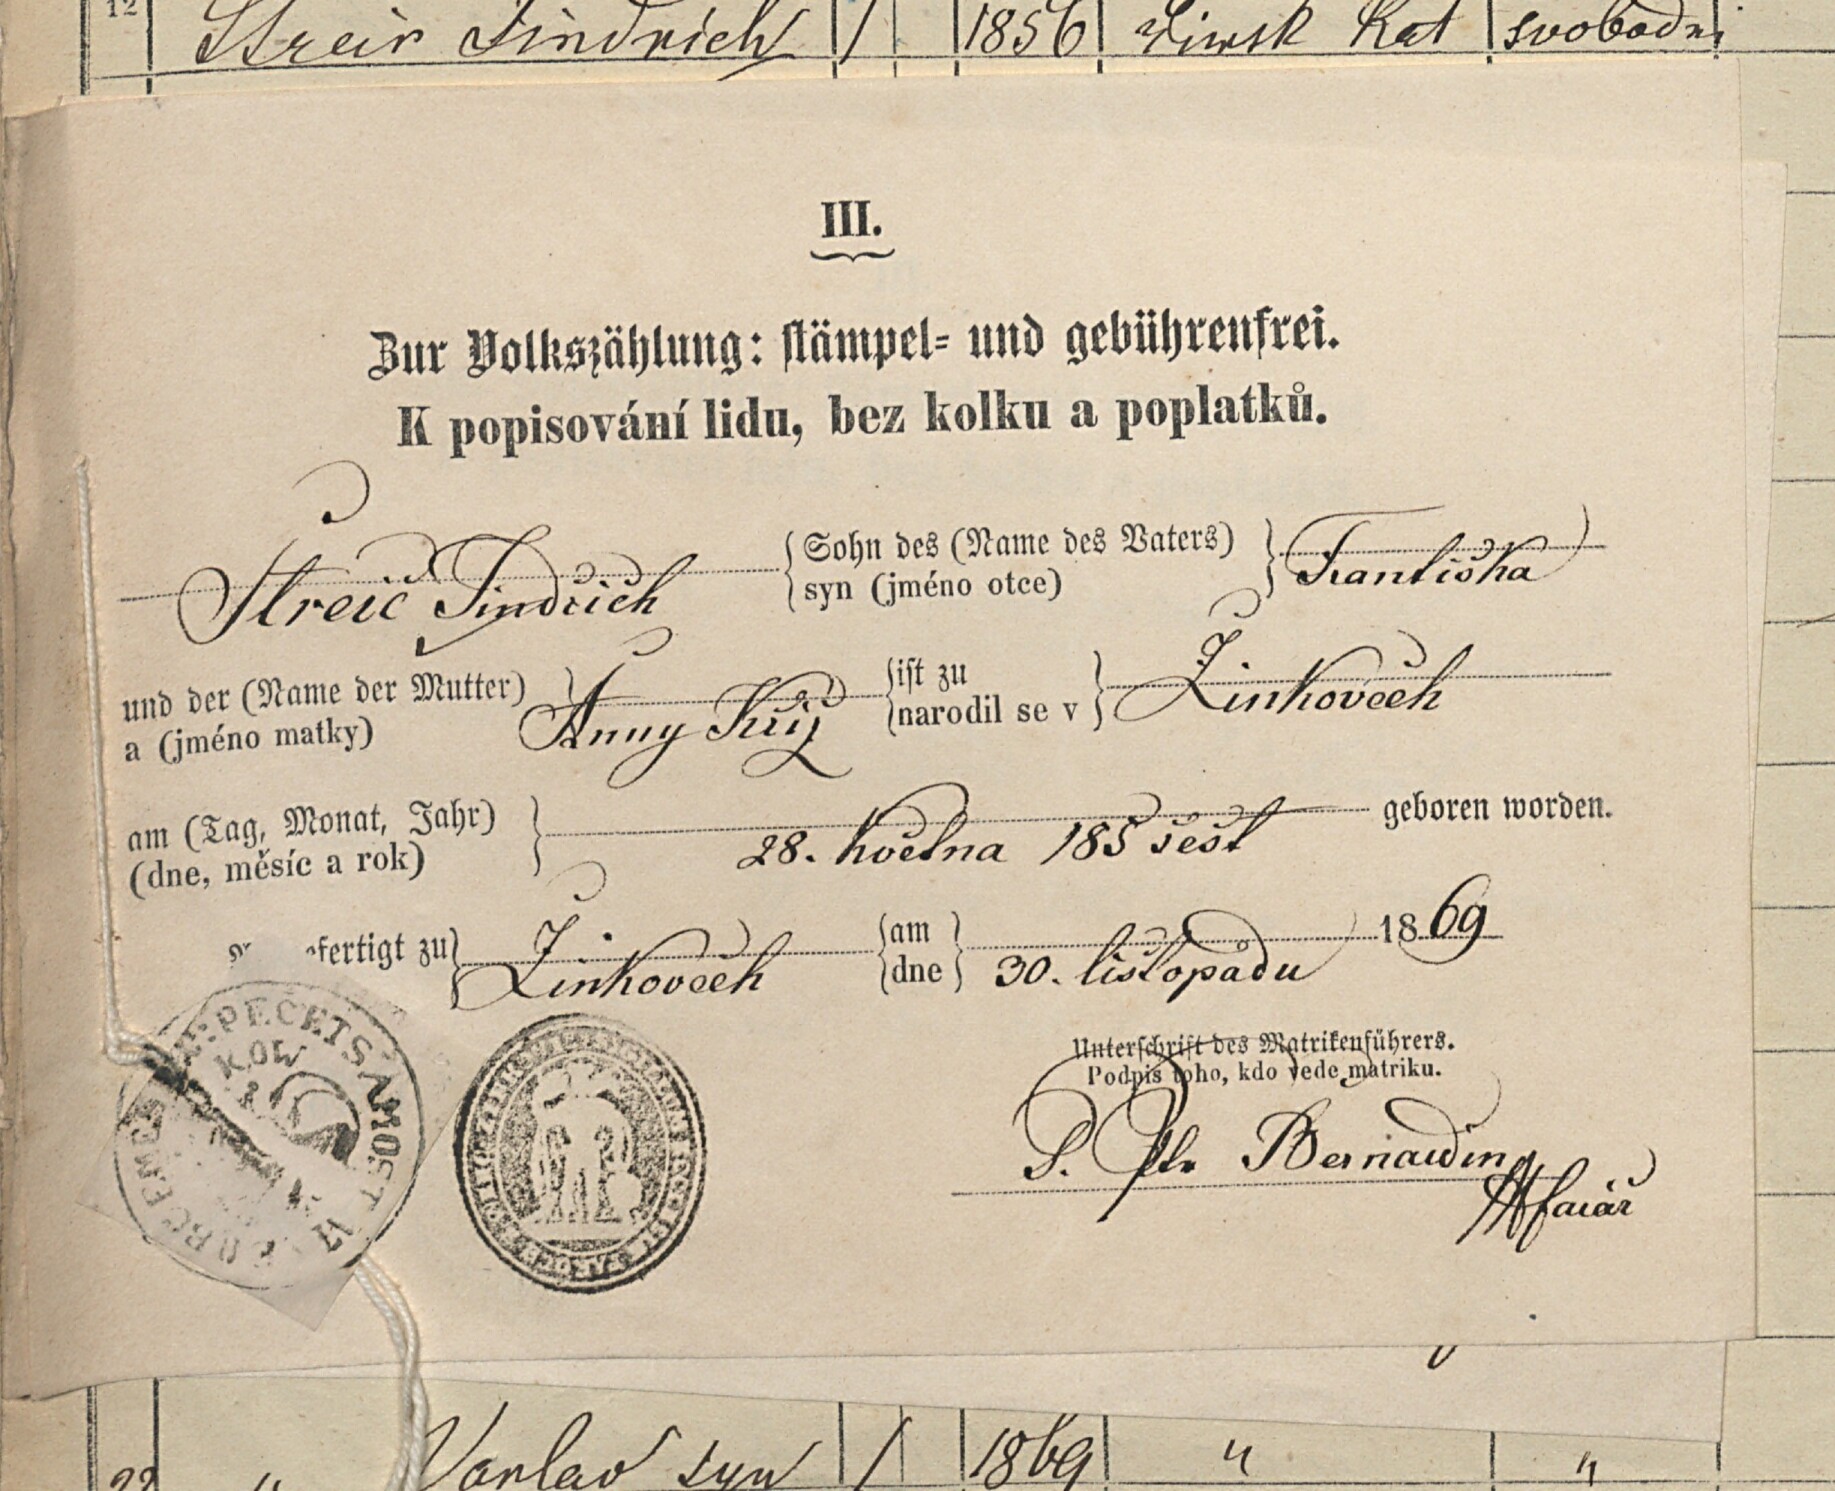 12 Streir Jindrich / 1856 Zinsk Kat svobodni
III.
Zur Volkszählung: stämpel- und gebührenfrei.
K popisování lidu, bez kolku a poplatků.
Štreič Jindřich
Sohn des (Name des Vaters)
syn (jméno otce)
Františka
und der (Name der Mutter)
a (jméno matky)
Anny Kříž
ist zu
narodil se v
Žinkovech
am (Tag, Monat, Jahr)
(dne, měsíc a rok)
28. května 185 šest
geboren worden.
fertigt zu
Žinkovech
am
dne
30. listopadu
1869
Unterschrift des Matrikenführers.
Podpis toho, kdo vede matriku.
P. Bernardin
farář
PEČET SAMOST
KOW
22 " Vaclav syn / 1869 " "